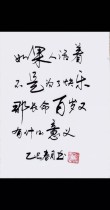 如果人活着
不是为了快乐
那长命百岁又
有什么意义
乙巳春月